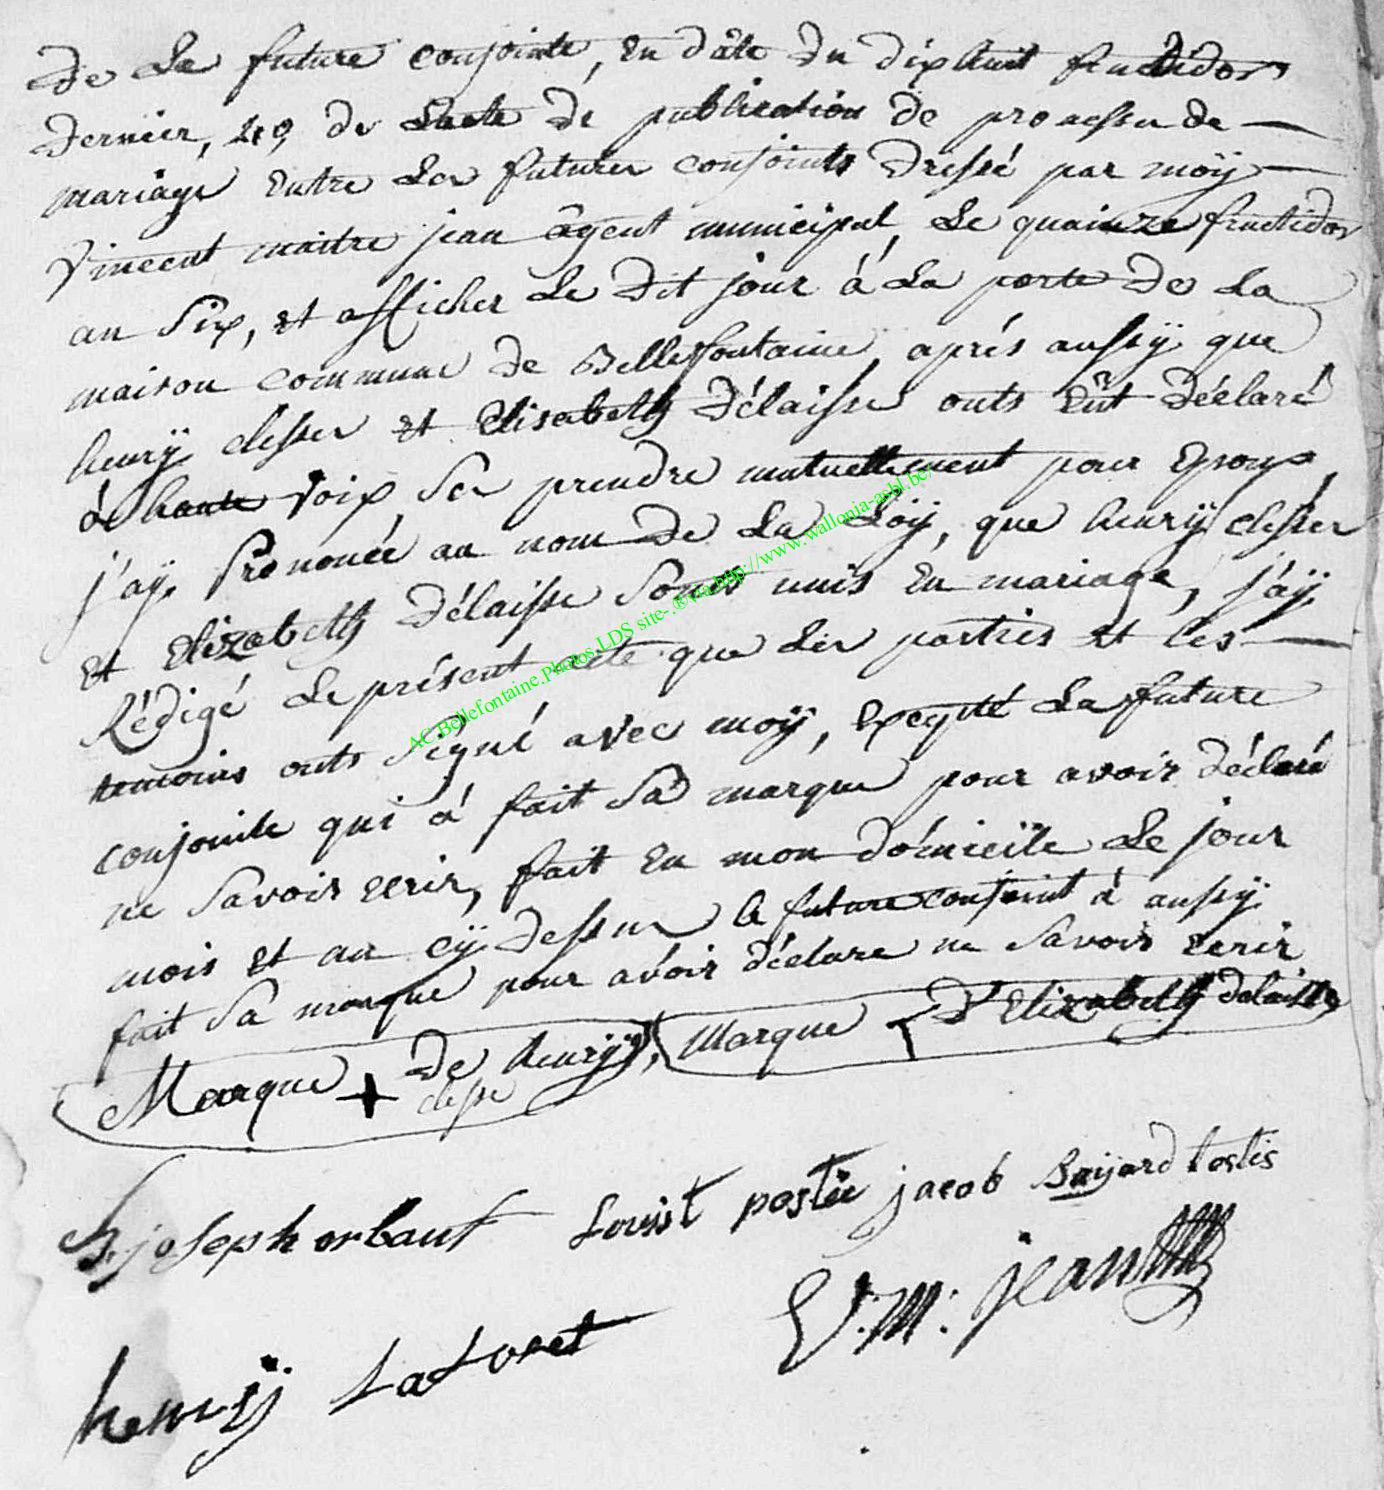 de La future conjointe, En dâte du dixhuit fructidor
dernier, 4º, de Lacte de publication de promesse de
mariage Entre Les futures conjoints dressé par moÿ
Vincent maitre jean agent municipal, Le quainze fructidor
an Six, et afficher Le dit jour á La porte de La
maison commune de Bellefontaine, aprés aussÿ que
henrÿ clesser et Elisabeth délaisse onts Eût déclaré
á haute Voix Ses prendre mutuellement pour Epoux,
j'aÿ Prononcé au nom de La Loÿ, que henrÿ clesser
et Elizabeth délaisse Sonts unis En mariage, j'aÿ
Rédigé Le présent acte que Les parties et les
temoins onts Signé avec moÿ, Excepté La future
conjointe qui á fait Sa marque pour avoir déclaré
ne Savoir ecrir, fait En mon domicile Le jour
mois et an cÿ dessus le future conjoint á aussÿ
fait Sa marque pour avoir déclare ne Savoir ecrir
Marque + de henrÿ clesse, Marque d'Elizabeth delaisse
joseph orbant Louist postie jacob Baijard testis
V: M: jean
henrÿ Laloret
AC.Bellefontaine.Photos.LDS site-.®wa.http://www.wallonia-asbl.be/